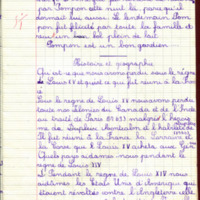 par Pompon elle nuit la para qui
dormait lui aussi. Le lendemain Pom
pon fut félicité par toute la famille de
bol plein de lait.
Pompon est un bon gardien
Histoire et géographie
Qu'est-ce que nous avons perdu sous le règne
de Louis XV et quest ce qui fut réuni à la Fran
ce
Sous le règne de Louis XV nous avons perdu
tout nos colonies du Canada et de l'Inde
au traité de Paris malgré l'héroïs
me de Dupleix Montcalm et l'habileté de
Il fut réuni à la France la Lorraine et
la Corse que Louis XV acheta aux Gé
Quels pays aidames nous pendant le
règne de Louis XVI
Pendant le règne de Louis XVI nous
aidâmes les Etats Unis d'Amérique qui
étaient révoltés contre l'Angleterre elle